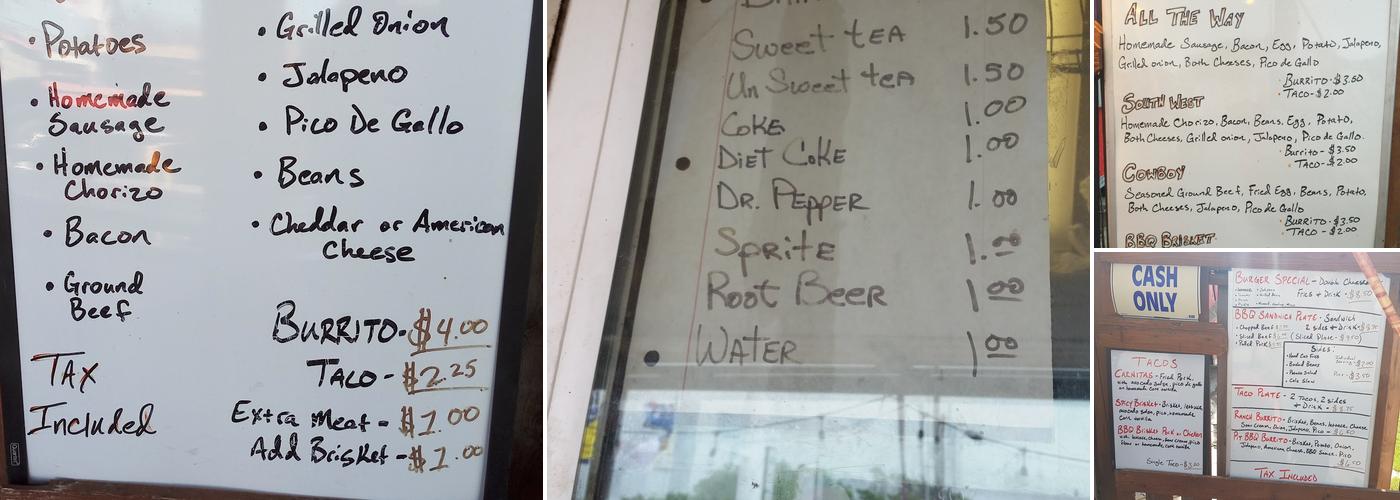 • Potatoes
• Homemade
Sausage
• Homemade
Chorizo
• Bacon
• Ground
Beef
TAX
Included
• Grilled Onion
• Jalapeno
• Pico De Gallo
• Beans
• Cheddar or American
Cheese
BURRITO-$4.00
TACO-$2.25
Extra Meat-$1.00
Add Brisket-$1.00
Sweet tEA 1.50
UnSweet tEA 1.50
COKE 1.00
DIET COKE 1.00
DR. PEPPER 1.00
Sprite 1.00
Root BEER 1.00
WATER 1.00
ALL THE WAY
Homemade Sausage, Bacon, Egg, Potato, Jalapeno,
Grilled onion, Both Cheeses, Pico de Gallo
BURRITO-$3.50
TACO-$2.00
SOUTH WEST
Homemade Chorizo, Bacon, Beans, Egg, Potato,
Both Cheeses, Grilled onion, Jalapeno, Pico de Gallo.
Burrito-$3.50
TACO-$2.00
COWBOY
Seasoned Ground Beef, Fried Egg, Beans, Potato,
Both Cheeses, Jalapeno, Pico de Gallo
BURRITO-$3.50
TACO-$2.00
BBQ BRISKET
CASH
ONLY
TACOS
CARNITAS-Fried Pork,
SPICY BRISKET-Brisket, lettuce,
avocado salsa, pico, homemade
BBQ BRISKET PORK or Chicken
Single Taco-$3.00
BURGER SPECIAL-Double Cheese
Fries & Drink-$8.50
BBQ SANDWICH PLATE-Sandwich
2 sides & Drink
• Chopped Beef
• Sliced Beef (Sliced Plate-$9.50)
• Pulled Pork
Sides:
• Baked Beans
• Potato Salad
• Cole Slaw
TACO PLATE-2 Tacos, 2 sides
& Drink
RANCH BURRITO-Brisket, Beans, lettuce, Cheese
Sour Cream, Onion, Jalapeno, Pico-$6.50
PIT BBQ BURRITO-Brisket, Potato, Onion,
Jalapeno, American Cheese, BBQ Sauce, Pico
$6.50
TAX INCLUDED